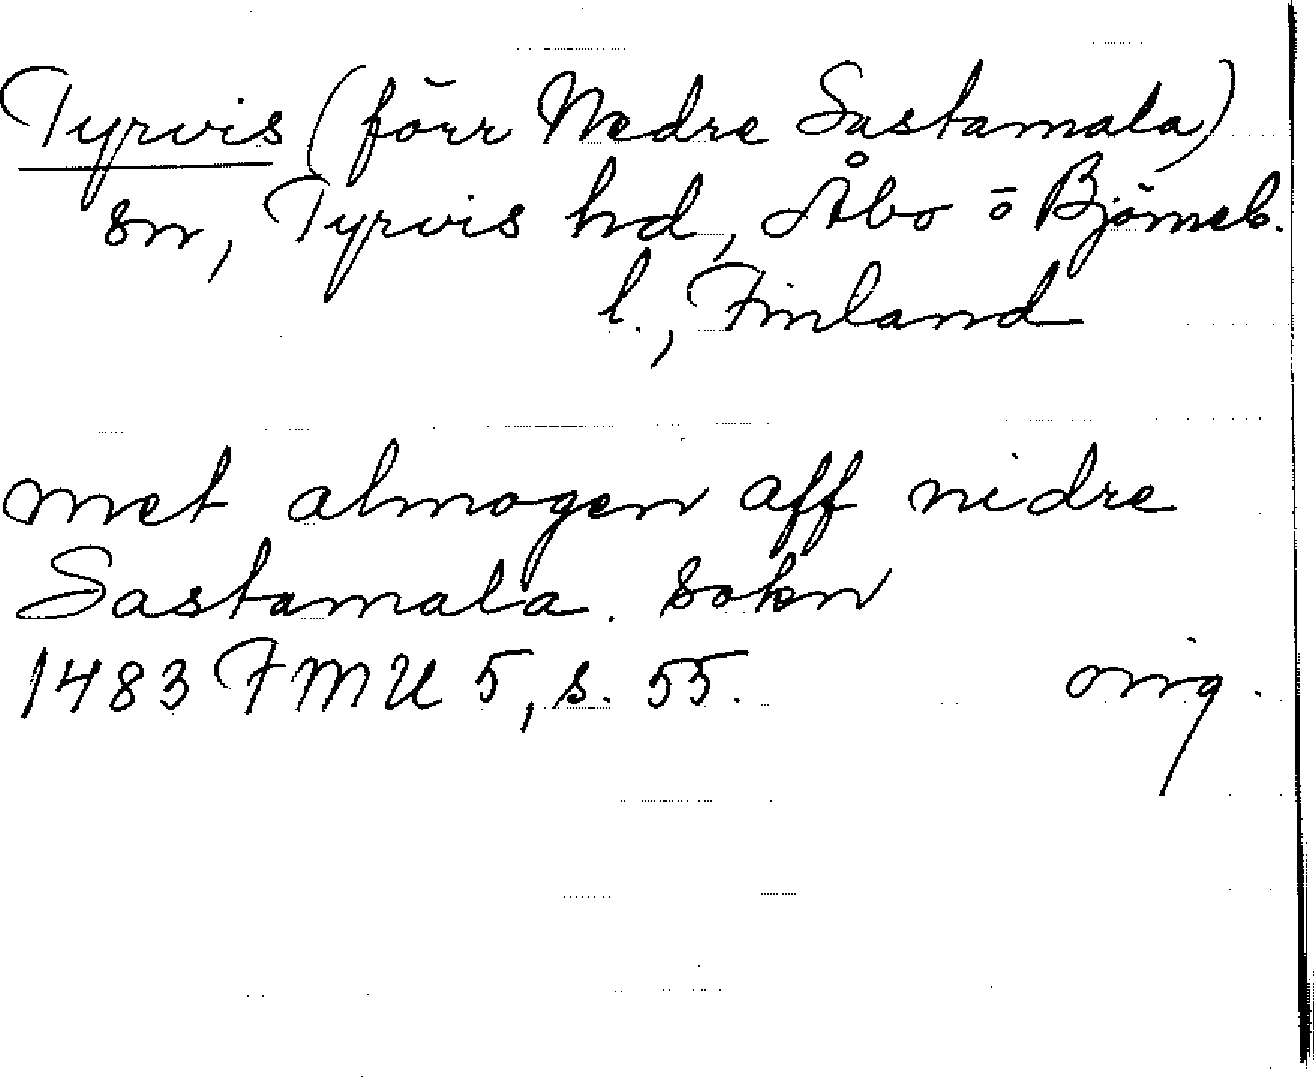 Tyrvis (förr Nedre Sastamala)
sn, Tyrvis hd, Åbo o Björneb.
l., Finland
met almogen aff nidre
Sastamala. sokn
1483 FMU 5, s. 55. orig.